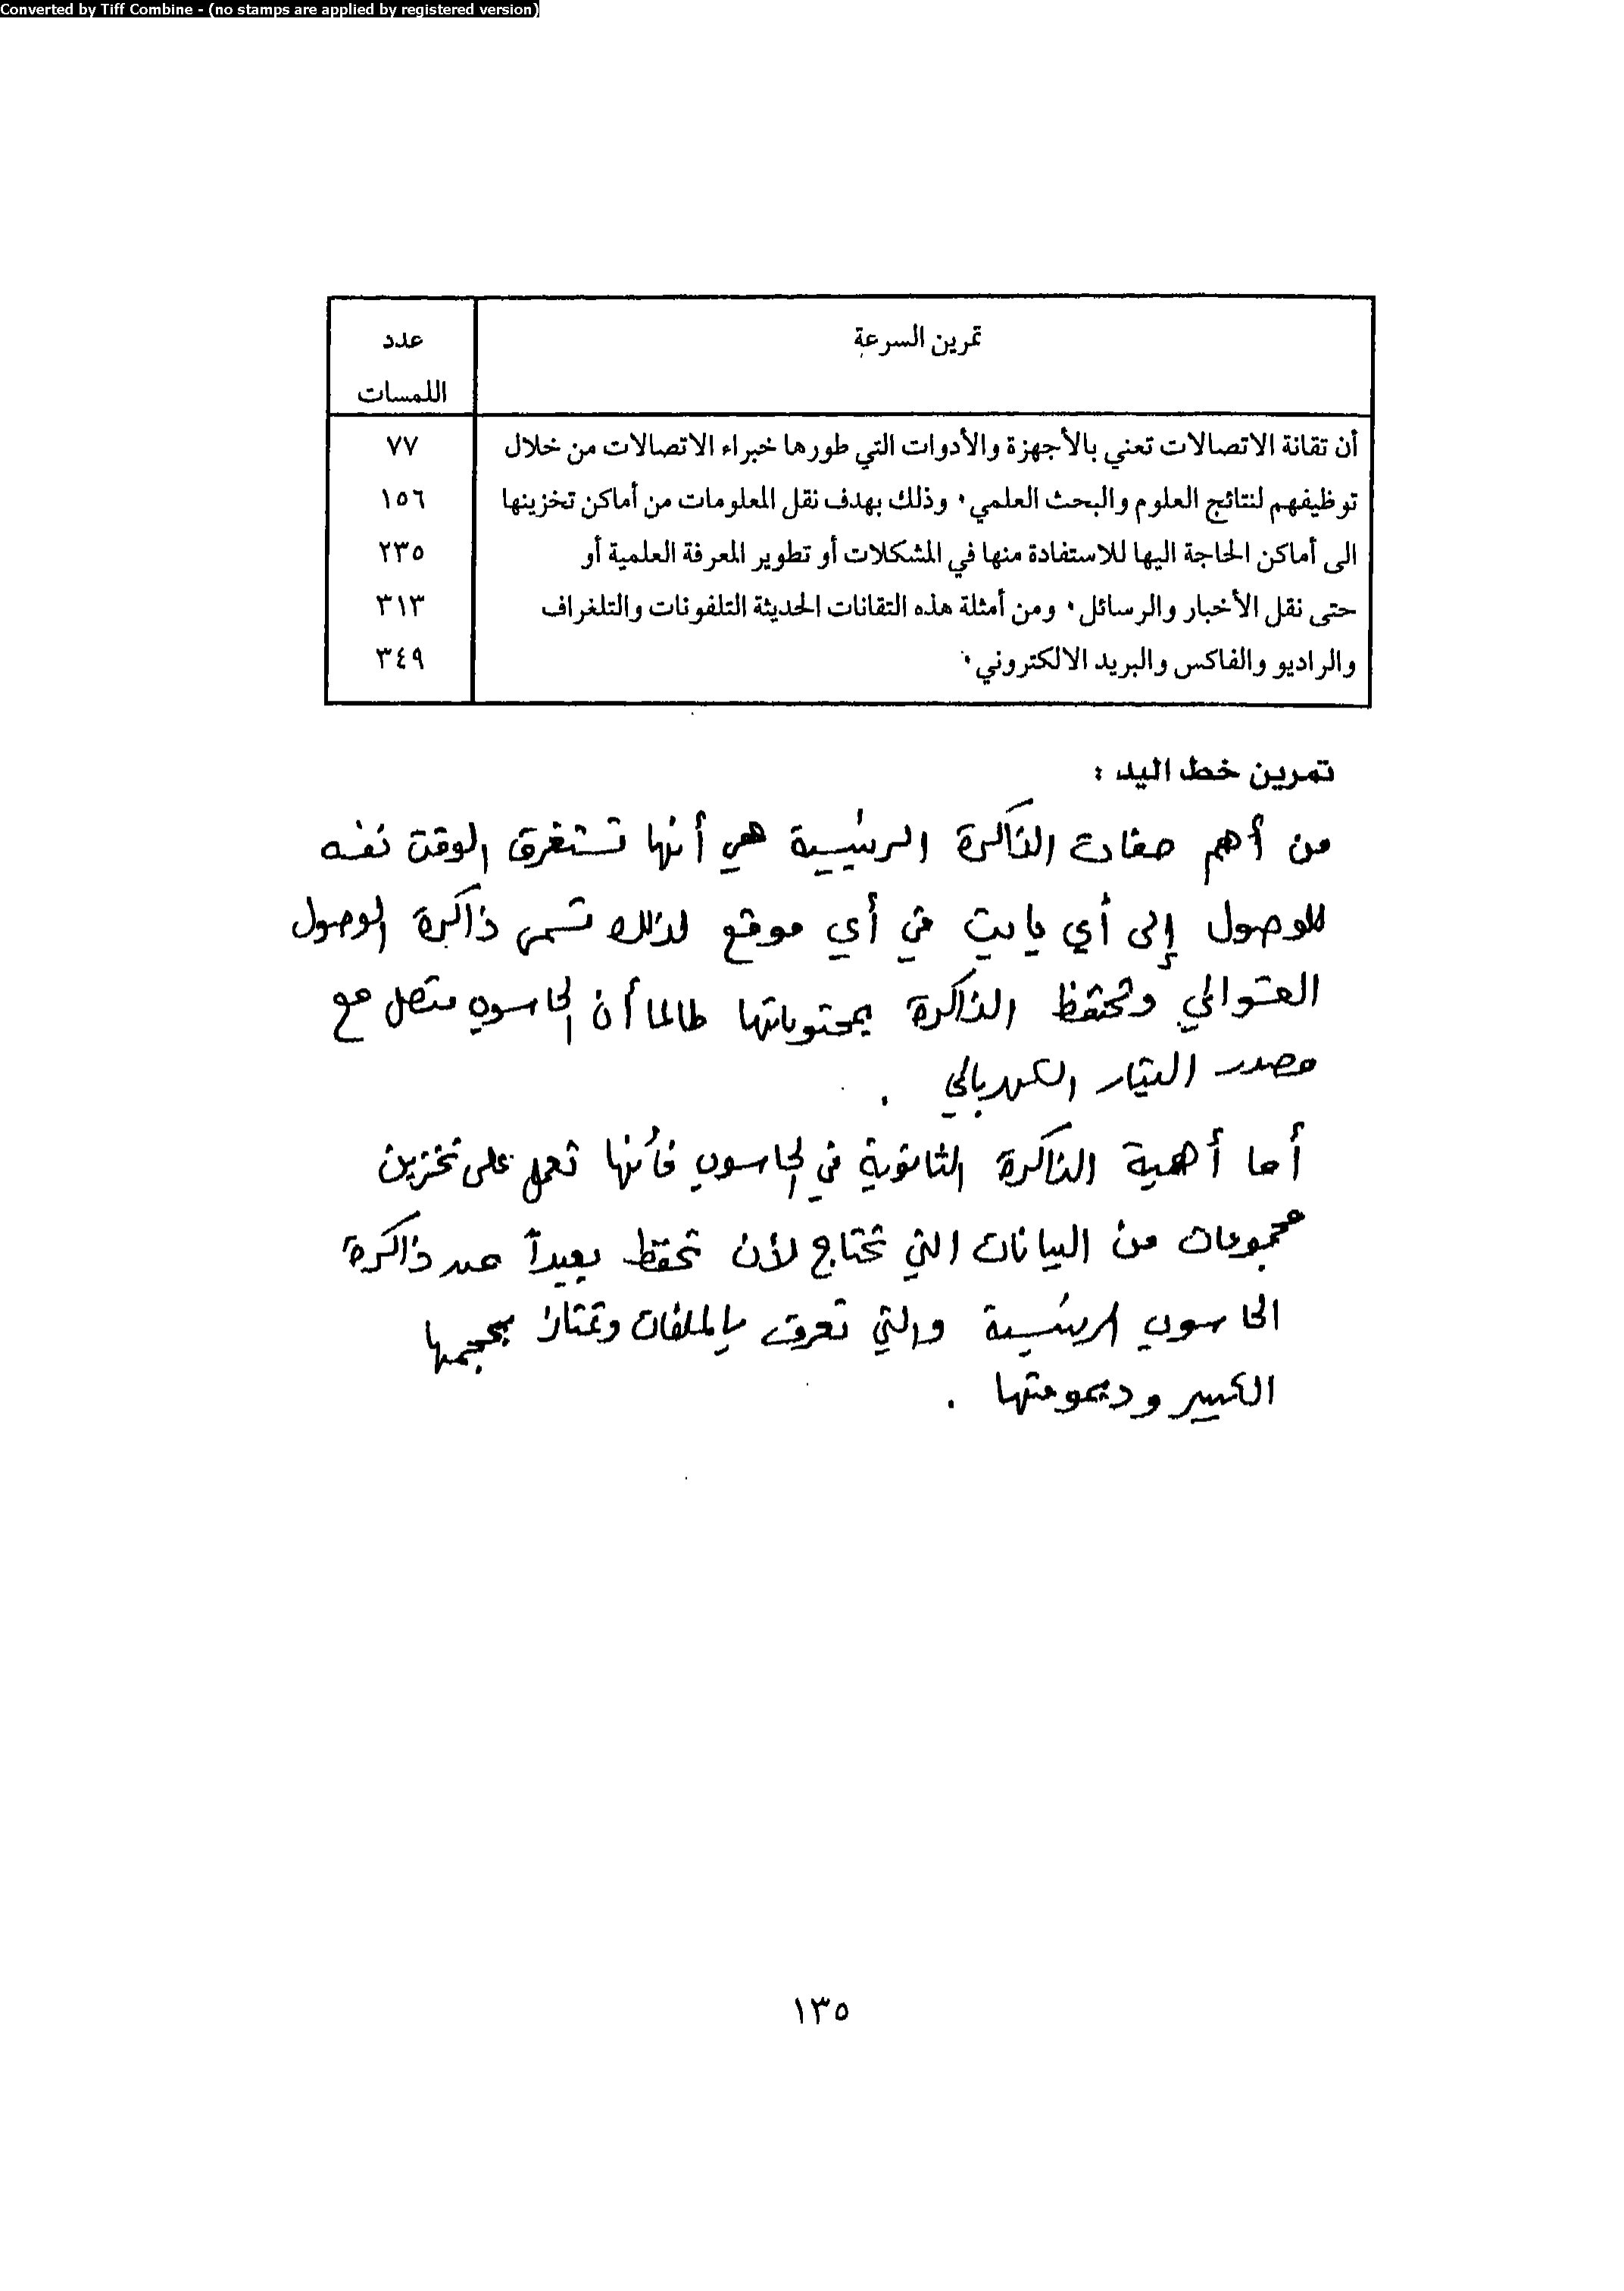 Converted by Tiff Combine - (no stamps are applied by registered version)
تمرين السرعة
عدد
اللمسات
أن تقانة الاتصالات تعني بالأجهزة والأدوات التي طورها خبراء الاتصالات من خلال ٧٧
توظيفهم لنتائج العلوم والبحث العلمي٠ وذلك بهدف نقل المعلومات من أماكن تخزينها ١٥٦
الى أماكن الحاجة اليها للاستفادة منها في المشكلات أو تطوير المعرفة العلمية أو ٢٣٥
حتى نقل الأخبار والرسائل٠ ومن أمثلة هذه التقانات الحديثة التلفونات والتلغراف ٣١٣
والراديو والفاكس والبريد الالكتروني٠ ٣٤٩
تمرين خط اليد :
من أهم صفات الذاكرة الرئيسية هي أنها تستغرق الوقت نفسه
للوصول إلى أي بايت في أي موقع لذلك تسمى ذاكرة الوصول
العشوائي وتحتفظ الذاكرة بمحتوياتها طالما أن الحاسوب متصل مع
مصدر التيار الكهربائي .
أما أهمية الذاكرة الثانوية في الحاسوب فأنها تعمل على تخزين
مجموعات من البيانات التي تحتاج لأن تحفظ بعيداً عن ذاكرة
الحاسوب الرئيسية والتي تعرف بالملفات وتمتاز بحجمها
الكبير وديمومتها .
١٣٥